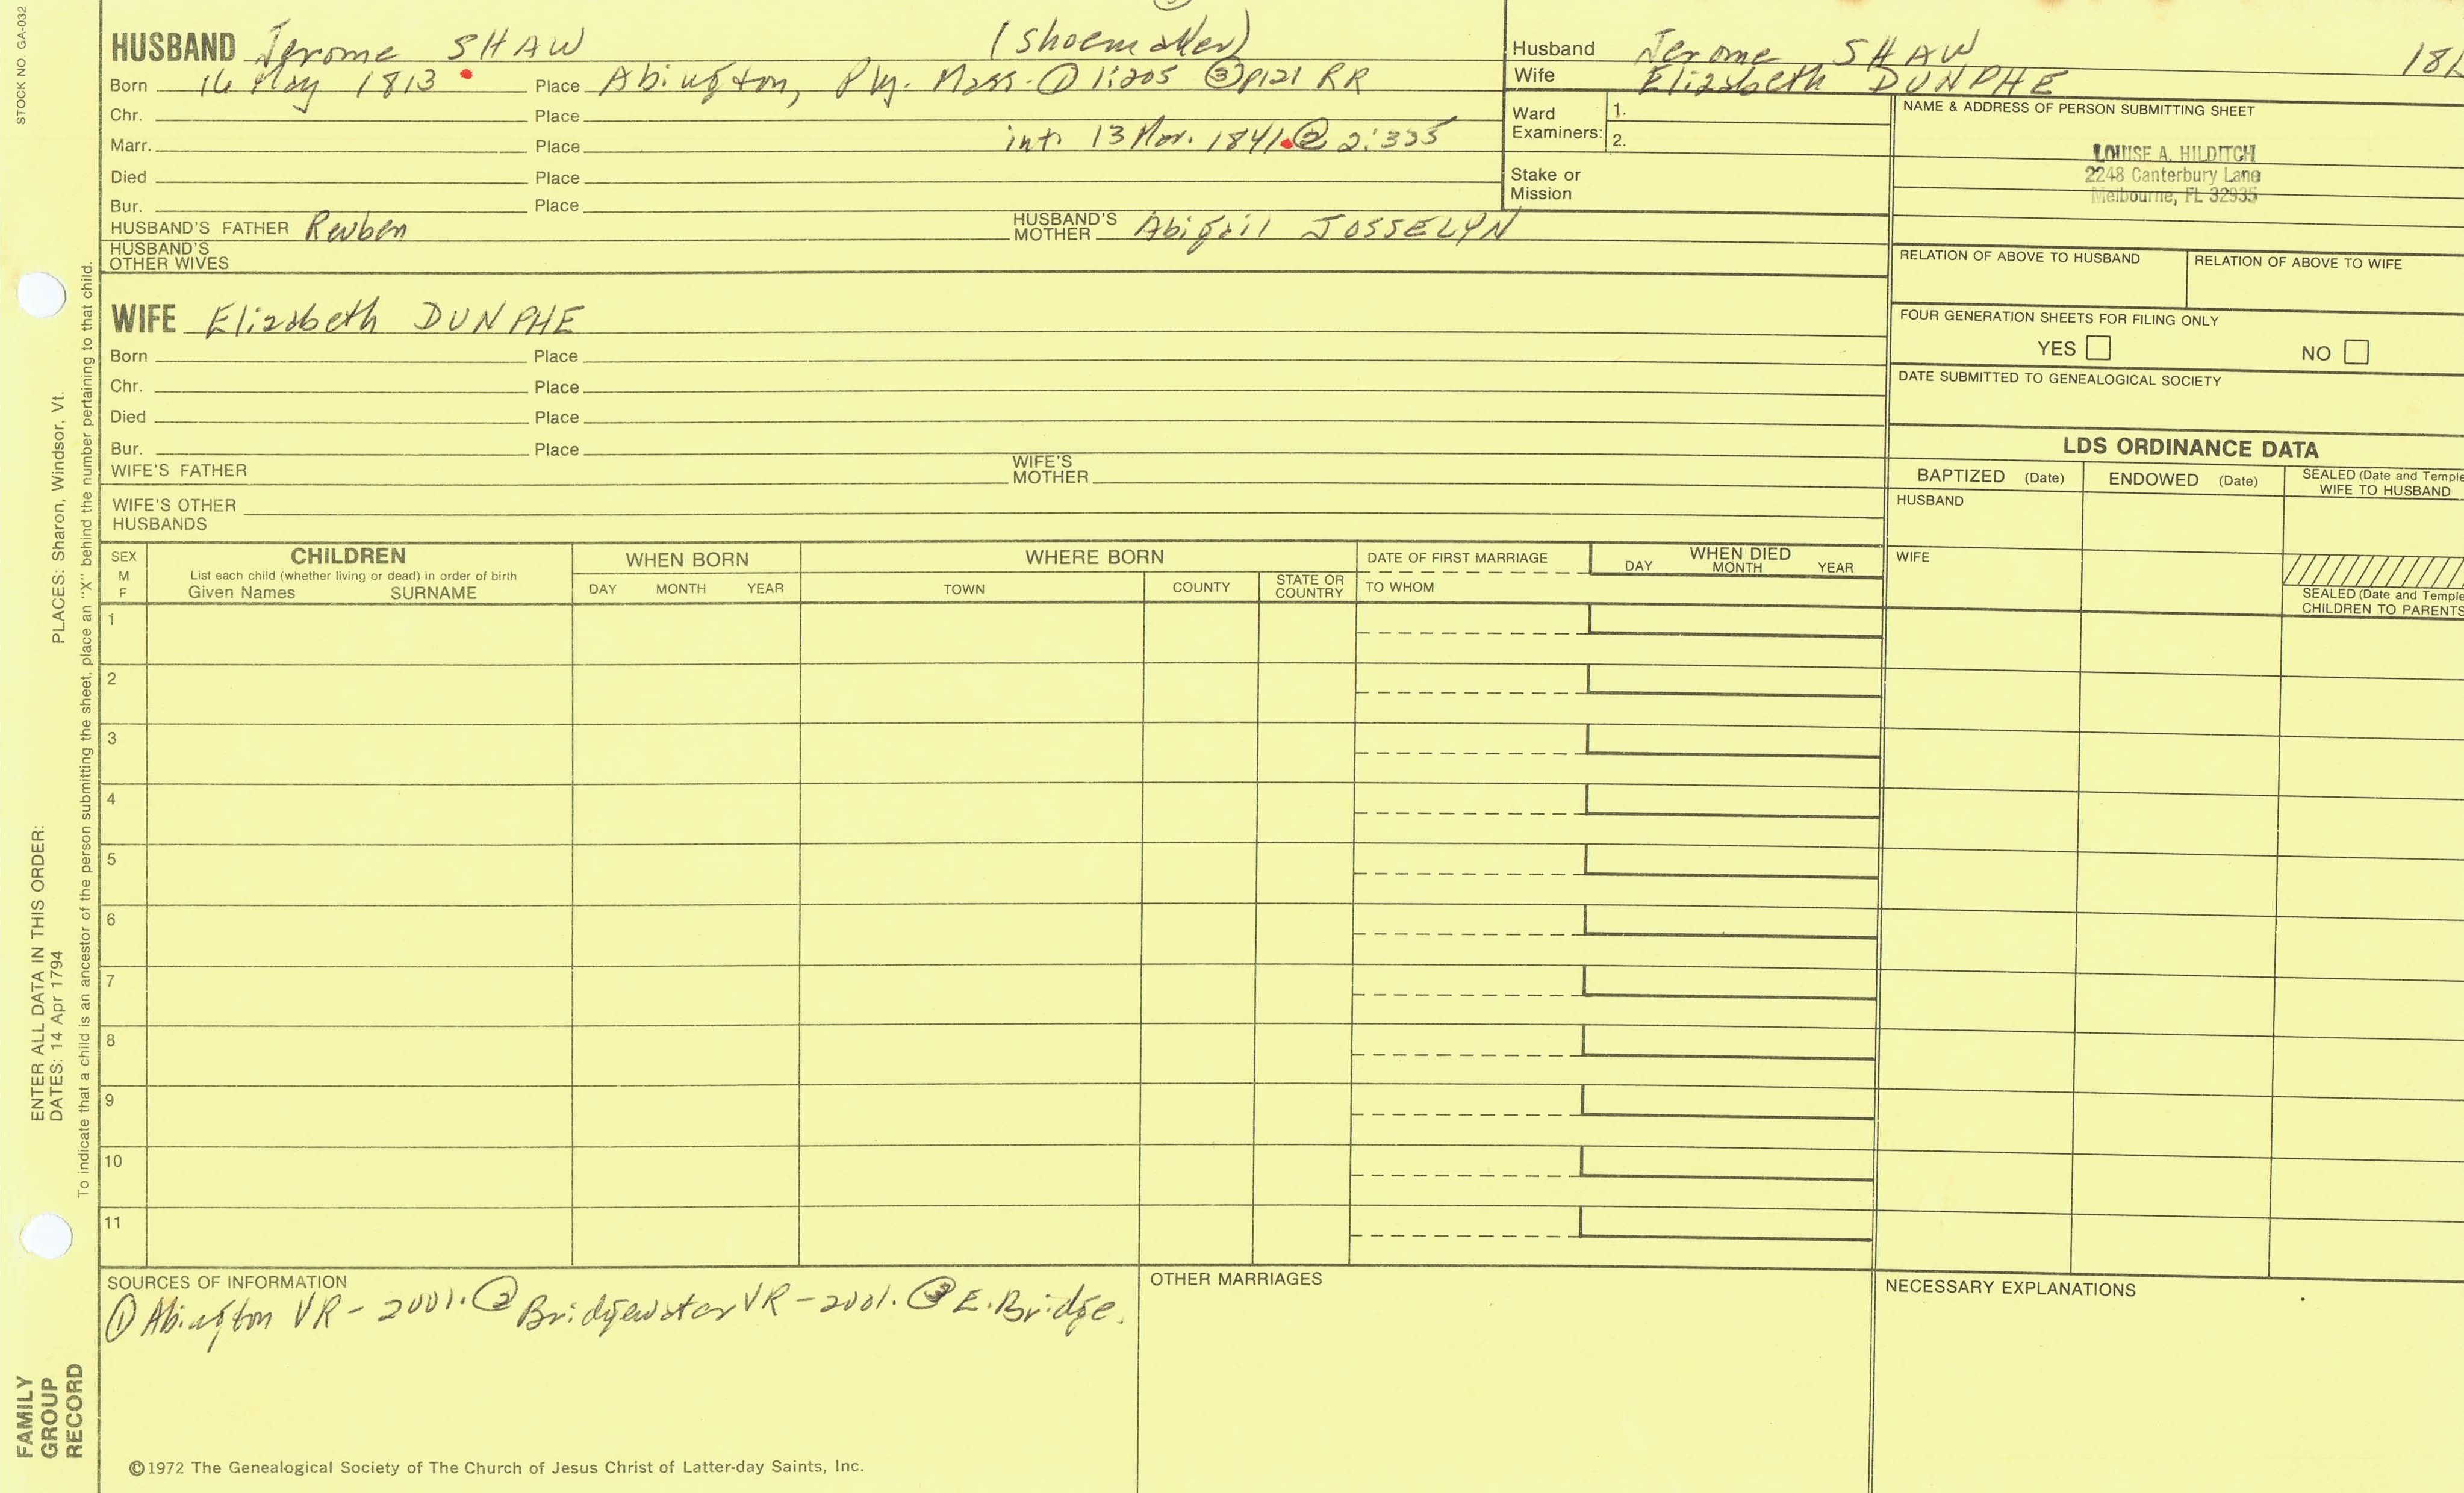 STOCK NO. GA-032
HUSBAND Jerome SHAW (Shoemaker)
Born 16 May 1813 Place Abington, Ply. Mass. ① 1:205 ③ p121 RR
Chr. Place
Marr. Place int. 13 Mar. 1841. ② 2:335
Died Place
Bur. Place
HUSBAND'S FATHER Reuben HUSBAND'S MOTHER Abigail JOSSELYN
HUSBAND'S OTHER WIVES
WIFE Elizabeth DUNPHE
Born Place
Chr. Place
Died Place
Bur. Place
WIFE'S FATHER WIFE'S MOTHER
WIFE'S OTHER HUSBANDS
Husband Jerome SHAW
Wife Elizabeth DUNPHE
Ward Examiners: 1.
2.
Stake or Mission
NAME & ADDRESS OF PERSON SUBMITTING SHEET
LOUISE A. HILDITCH
2248 Canterbury Lane
Melbourne, FL 32935
RELATION OF ABOVE TO HUSBAND RELATION OF ABOVE TO WIFE
FOUR GENERATION SHEETS FOR FILING ONLY
YES NO
DATE SUBMITTED TO GENEALOGICAL SOCIETY
LDS ORDINANCE DATA
BAPTIZED (Date) ENDOWED (Date) SEALED (Date and Temple
WIFE TO HUSBAND
HUSBAND
WIFE
SEALED (Date and Temple
CHILDREN TO PARENTS
SEX M F CHILDREN WHEN BORN WHERE BORN DATE OF FIRST MARRIAGE WHEN DIED
List each child (whether living or dead) in order of birth
Given Names SURNAME DAY MONTH YEAR TOWN COUNTY STATE OR COUNTRY TO WHOM DAY MONTH YEAR
1
2
3
4
5
6
7
8
9
10
11
SOURCES OF INFORMATION
① Abington VR - 2001. ② Bridgewater VR - 2001. ③ E. Bridge.
OTHER MARRIAGES
NECESSARY EXPLANATIONS
©1972 The Genealogical Society of The Church of Jesus Christ of Latter-day Saints, Inc.
FAMILY
GROUP
RECORD
ENTER ALL DATA IN THIS ORDER:
DATES: 14 Apr 1794 PLACES: Sharon, Windsor, Vt.
To indicate that a child is an ancestor of the person submitting the sheet, place an "X" behind the number pertaining to that child.